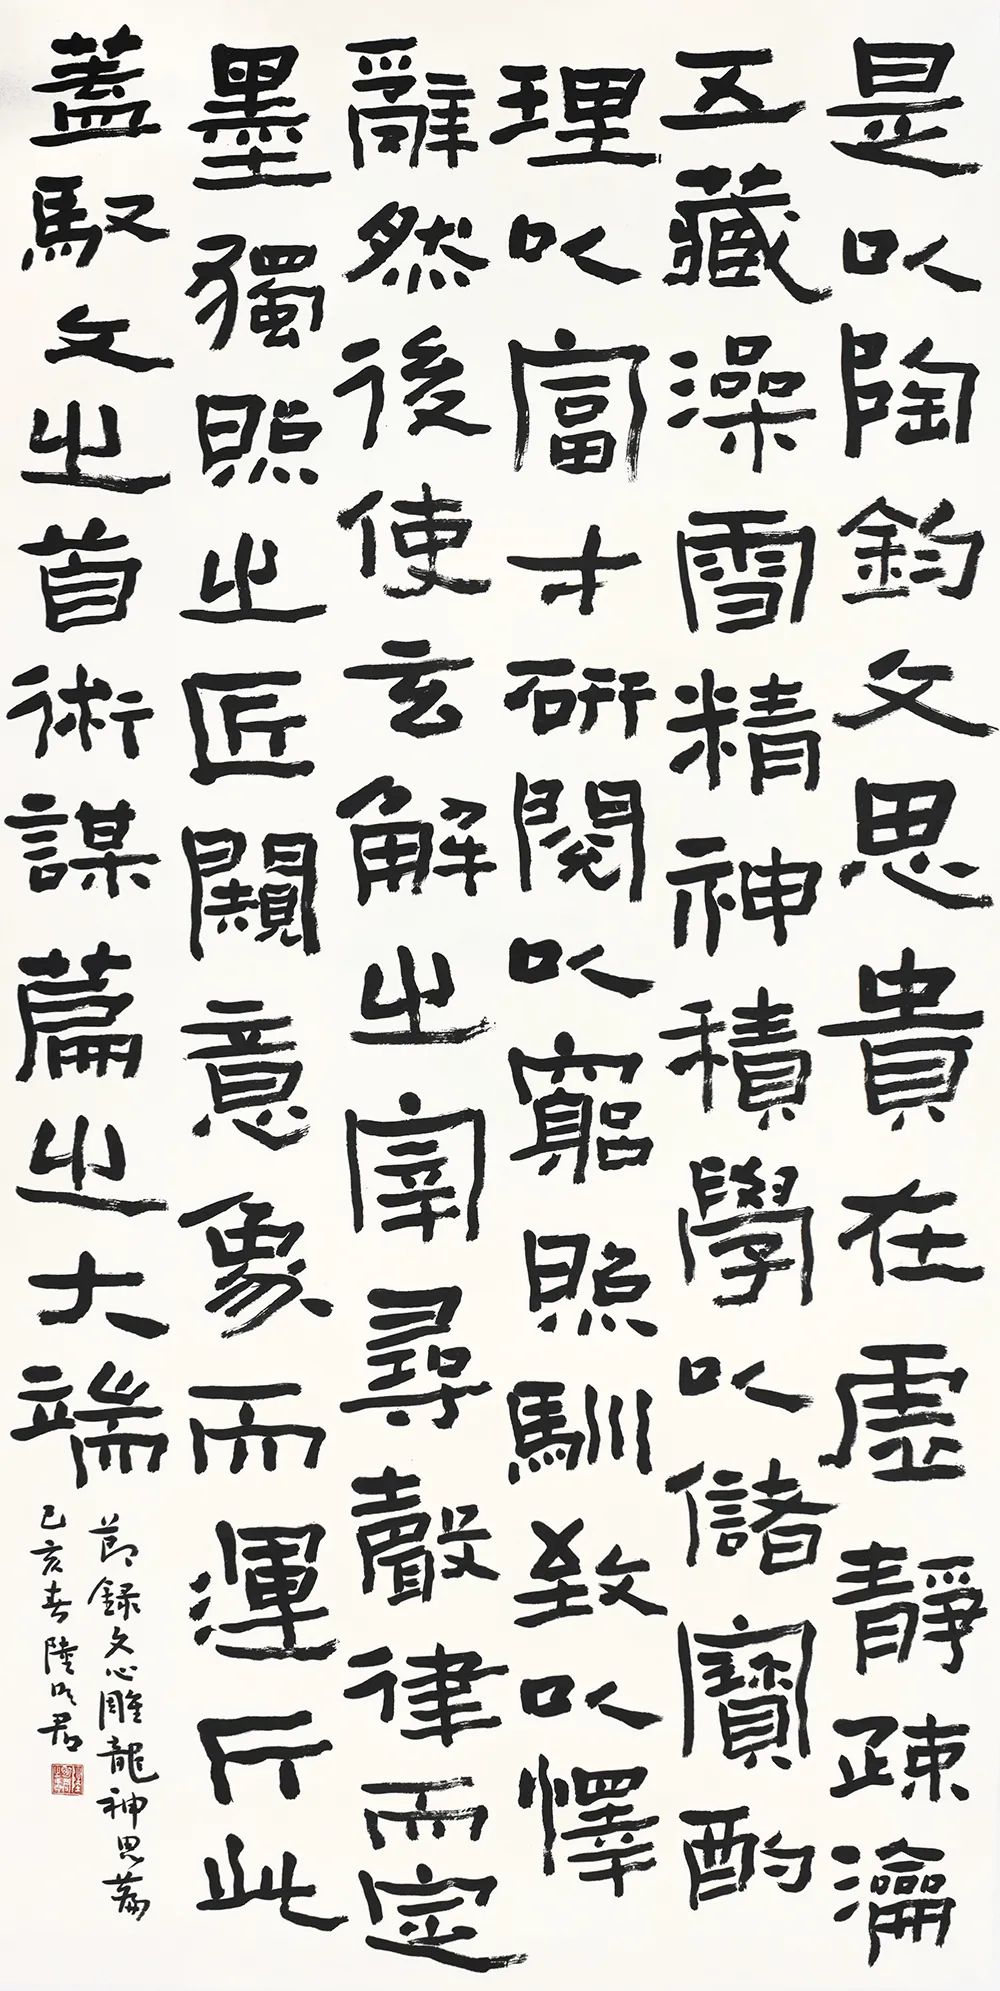 是以陶鈞文思貴在虛靜疏瀹
五藏澡雪精神積學以儲寶酌
理以富才研閱以窮照馴致以懌
辭然後使玄解之宰尋聲律而定
墨獨照之匠闚意象而運斤此
蓋馭文之首術謀篇之大端
節錄文心雕龍神思篇
己亥春陸明君